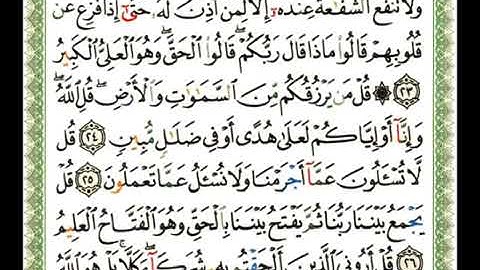 وَلَا تَنفَعُ ٱلشَّفَٰعَةُ عِندَهُۥٓ إِلَّا لِمَنْ أَذِنَ لَهُۥ حَتَّىٰٓ إِذَا فُزِّعَ عَن
قُلُوبِهِمْ قَالُوا۟ مَاذَا قَالَ رَبُّكُمْ ۖ قَالُوا۟ ٱلْحَقَّ ۖ وَهُوَ ٱلْعَلِىُّ ٱلْكَبِيرُ
٢٣ ۞ قُلْ مَن يَرْزُقُكُم مِّنَ ٱلسَّمَٰوَٰتِ وَٱلْأَرْضِ ۖ قُلِ ٱللَّهُ ۖ
وَإِنَّآ أَوْ إِيَّاكُمْ لَعَلَىٰ هُدًى أَوْ فِى ضَلَٰلٍ مُّبِينٍ ٢٤ قُل
لَّا تُسْـَٔلُونَ عَمَّآ أَجْرَمْنَا وَلَا نُسْـَٔلُ عَمَّا تَعْمَلُونَ ٢٥ قُلْ
يَجْمَعُ بَيْنَنَا رَبُّنَا ثُمَّ يَفْتَحُ بَيْنَنَا بِٱلْحَقِّ وَهُوَ ٱلْفَتَّاحُ ٱلْعَلِيمُ
٢٦ قُلْ أَرُونِىَ ٱلَّذِينَ أَلْحَقْتُم بِهِۦ شُرَكَآءَ ۖ كَلَّا ۚ بَلْ هُوَ ٱللَّهُ